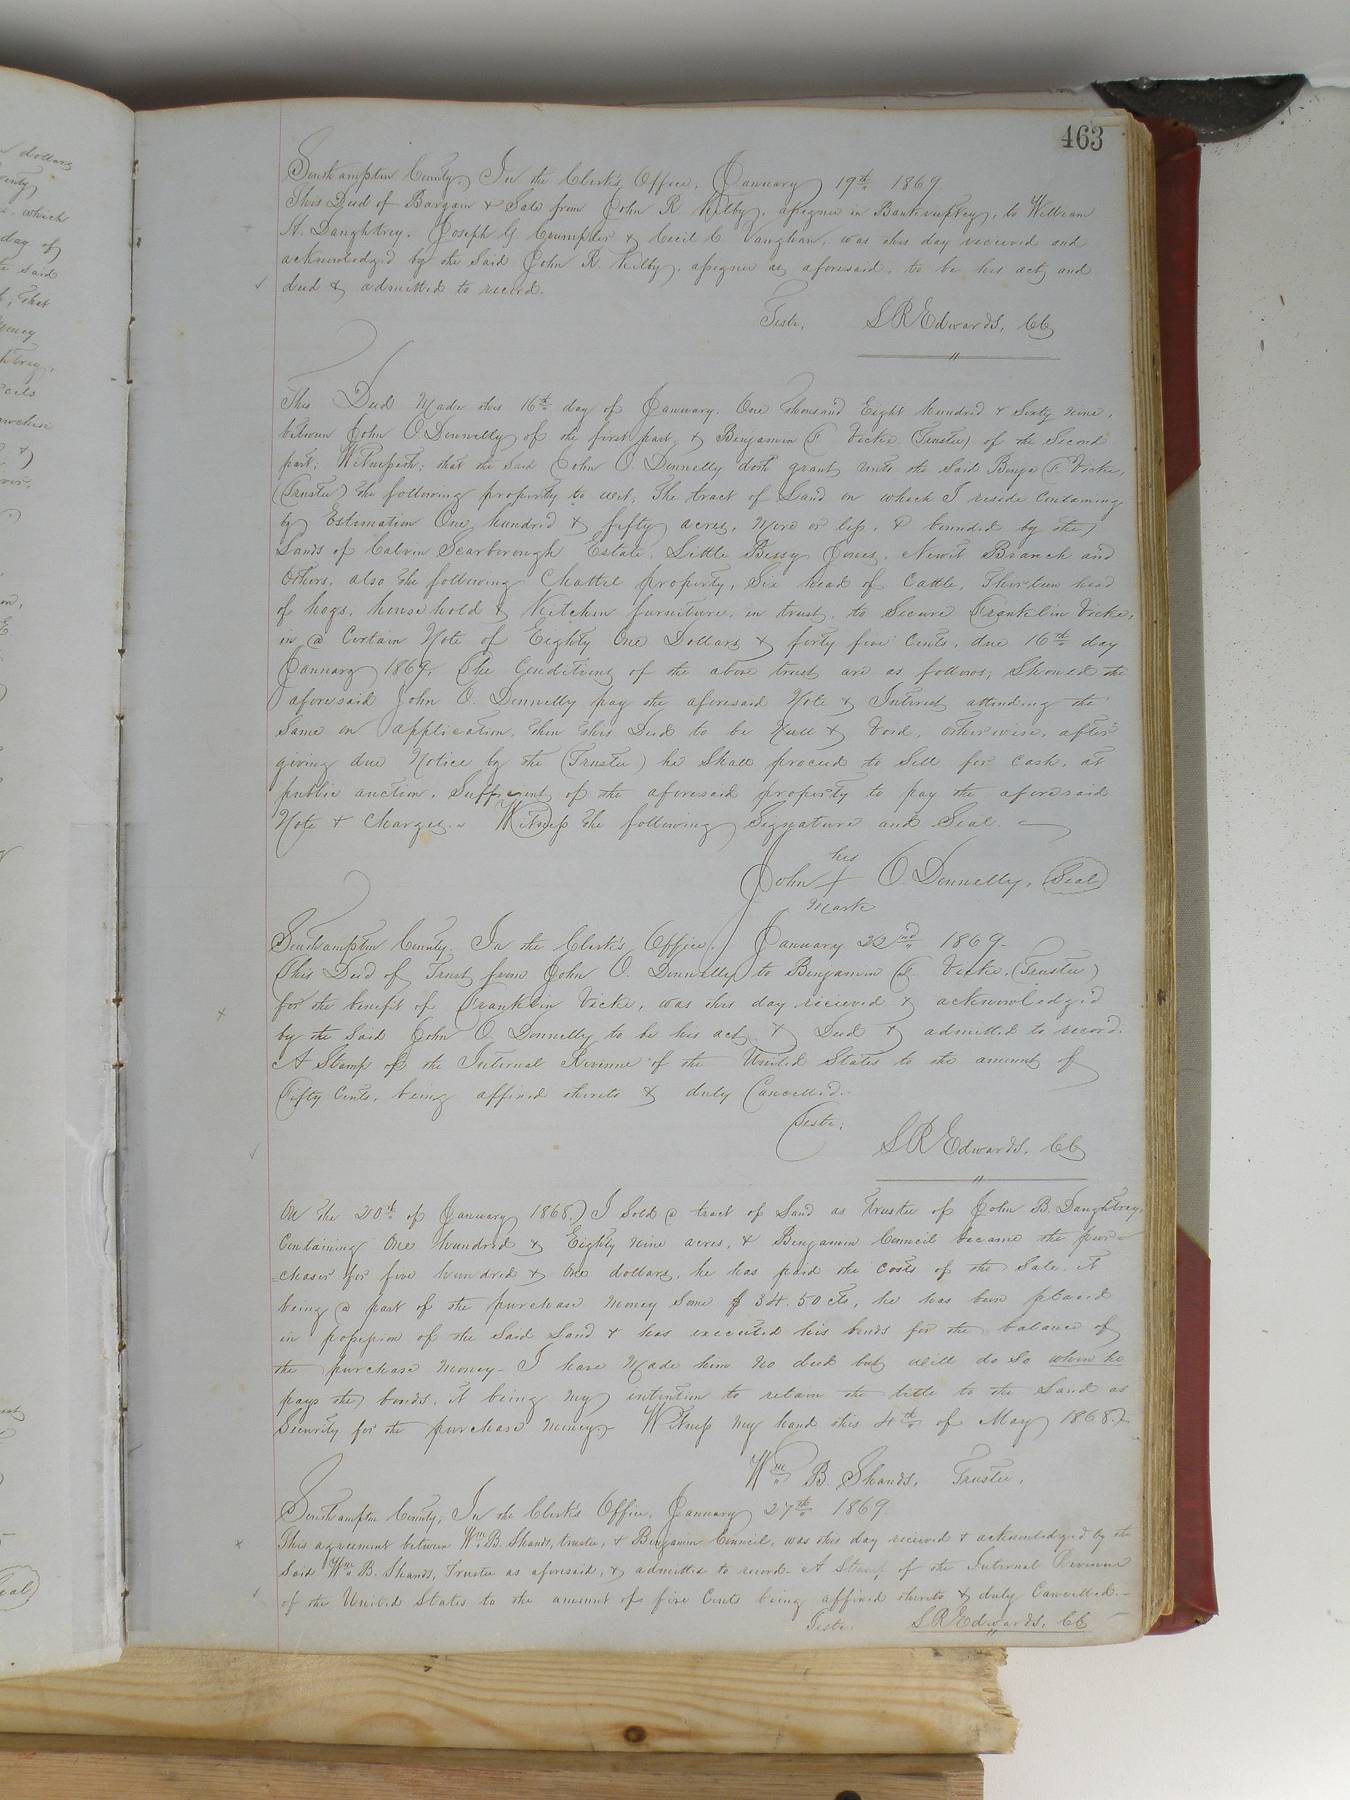 463
Southampton County, In the Clerk's Office, January 19th 1869.
This Deed of Bargain & Sale from John R Kilby, assignee in Bankruptcy, to William
H. Daughtrey, Joseph G Crumpler & Cecil C Vaughan, was this day received and
acknowledged by the said John R. Kilby, assignee as aforesaid, to be his act and
deed & admitted to record.
Teste, L R Edwards, CC
This Deed Made this 16th day of January, One thousand Eight hundred & Sixty Nine,
between John O Donnelly of the first part, & Benjamin F Vicke (Trustee) of the Second
part; Witnesseth; that the said John O. Donnelly doth grant unto the Said Benja F. Vicke,
(Trustee) the following property to wit, The tract of Land on which I reside Containing
by Estimation One hundred & fifty acres, More or less, & bounded by the
Lands of Calvin Scarborough Estate, Little Berry Jones, Newit Branch and
Others, also the following Chattel property, Six head of Cattle, Thirteen head
of hogs, household & Kitchen furniture, in trust, to Secure Franklin Vicke,
in a Certain Note of Eighty One Dollars & forty five Cents, due 16th day
January 1869, The Conditions of the above trust are as follows, Should the
aforesaid John O. Donnelly pay the aforesaid Note & Interest attending the
Same on application, then this Deed to be Null & Void, otherwise, after
giving due Notice by the (Trustee) he Shall proceed to Sell for Cash, at
public auction, Sufficient of the aforesaid property to pay the aforesaid
Note & Charges. Witness the following Signature and Seal.
his
John + O. Donnelly, (Seal)
Mark
Southampton County. In the Clerk's Office, January 22nd 1869-
This Deed of Trust from John O. Donnelly to Benjamin F. Vicke (Trustee)
for the benefit of Franklin Vicke, was this day recieved & acknowledged
by the Said John O Donnelly to be his act & Deed & admitted to record.
A Stamp of the Internal Revenue of the United States to the amount of
Fifty Cents, being affixed thereto & duly Cancelled.
Teste,
L R Edwards, CC
On the 20th of January 1868, I Sold a tract of Land as trustee of John B. Daughtrey,
Containing One hundred & Eighty Nine acres, & Benjamin Council became the pur-
-chaser for five hundred & One dollars, he has paid the costs of the Sale. It
being a part of the purchase Money Some $34.50 cts, he has been placed
in possession of the Said Land & has executed his bonds for the balance of
the purchase Money- I have Made him No deed but will do So when he
pays the bonds, it being My intention to retain the title to the Land as
Security for the purchase Money. Witness My hand this 4th of May 1868.
Wm B. Shands, Trustee.
Southampton County, In the Clerk's Office, January 27th 1869
This agreement between Wm B. Shands, trustee, & Benjamin Council, was this day recieved & acknowledged by the
Said Wm B. Shands, Trustee as aforesaid, & admitted to record- A Stamp of the Internal Revenue
of the United States to the amount of five Cents being affixed thereto & duly Cancelled.-
Teste. L R Edwards, CC